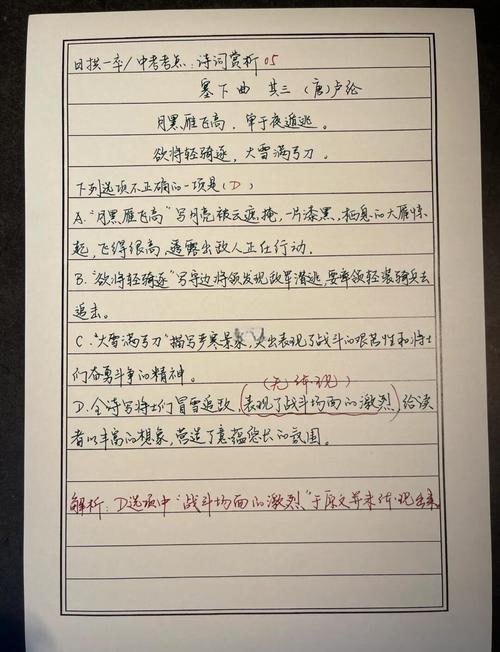 日拱一卒/中考考点:诗词赏析 05
塞下曲 其三 (唐)卢纶
月黑雁飞高，单于夜遁逃。
欲将轻骑逐，大雪满弓刀。
下列选项不正确的一项是(D)
A.“月黑雁飞高”写月亮被云遮掩,一片漆黑,栖息的大雁惊
起,飞得很高,透露出敌人正在行动.
B.“欲将轻骑逐”写守边将领发现敌军潜逃,要率领轻装骑兵去
追击。
C.“大雪满弓刀”描写严寒景象,突出表现了战斗的艰苦性和将士
们奋勇斗争的精神。
(无体现)
D.全诗写将士们冒雪追敌,(表现了战斗场面的激烈),给读
者以丰富的想象,营造了意蕴悠长的氛围。
解析:D选项中“战斗场面的激烈”于原文并未体现出来